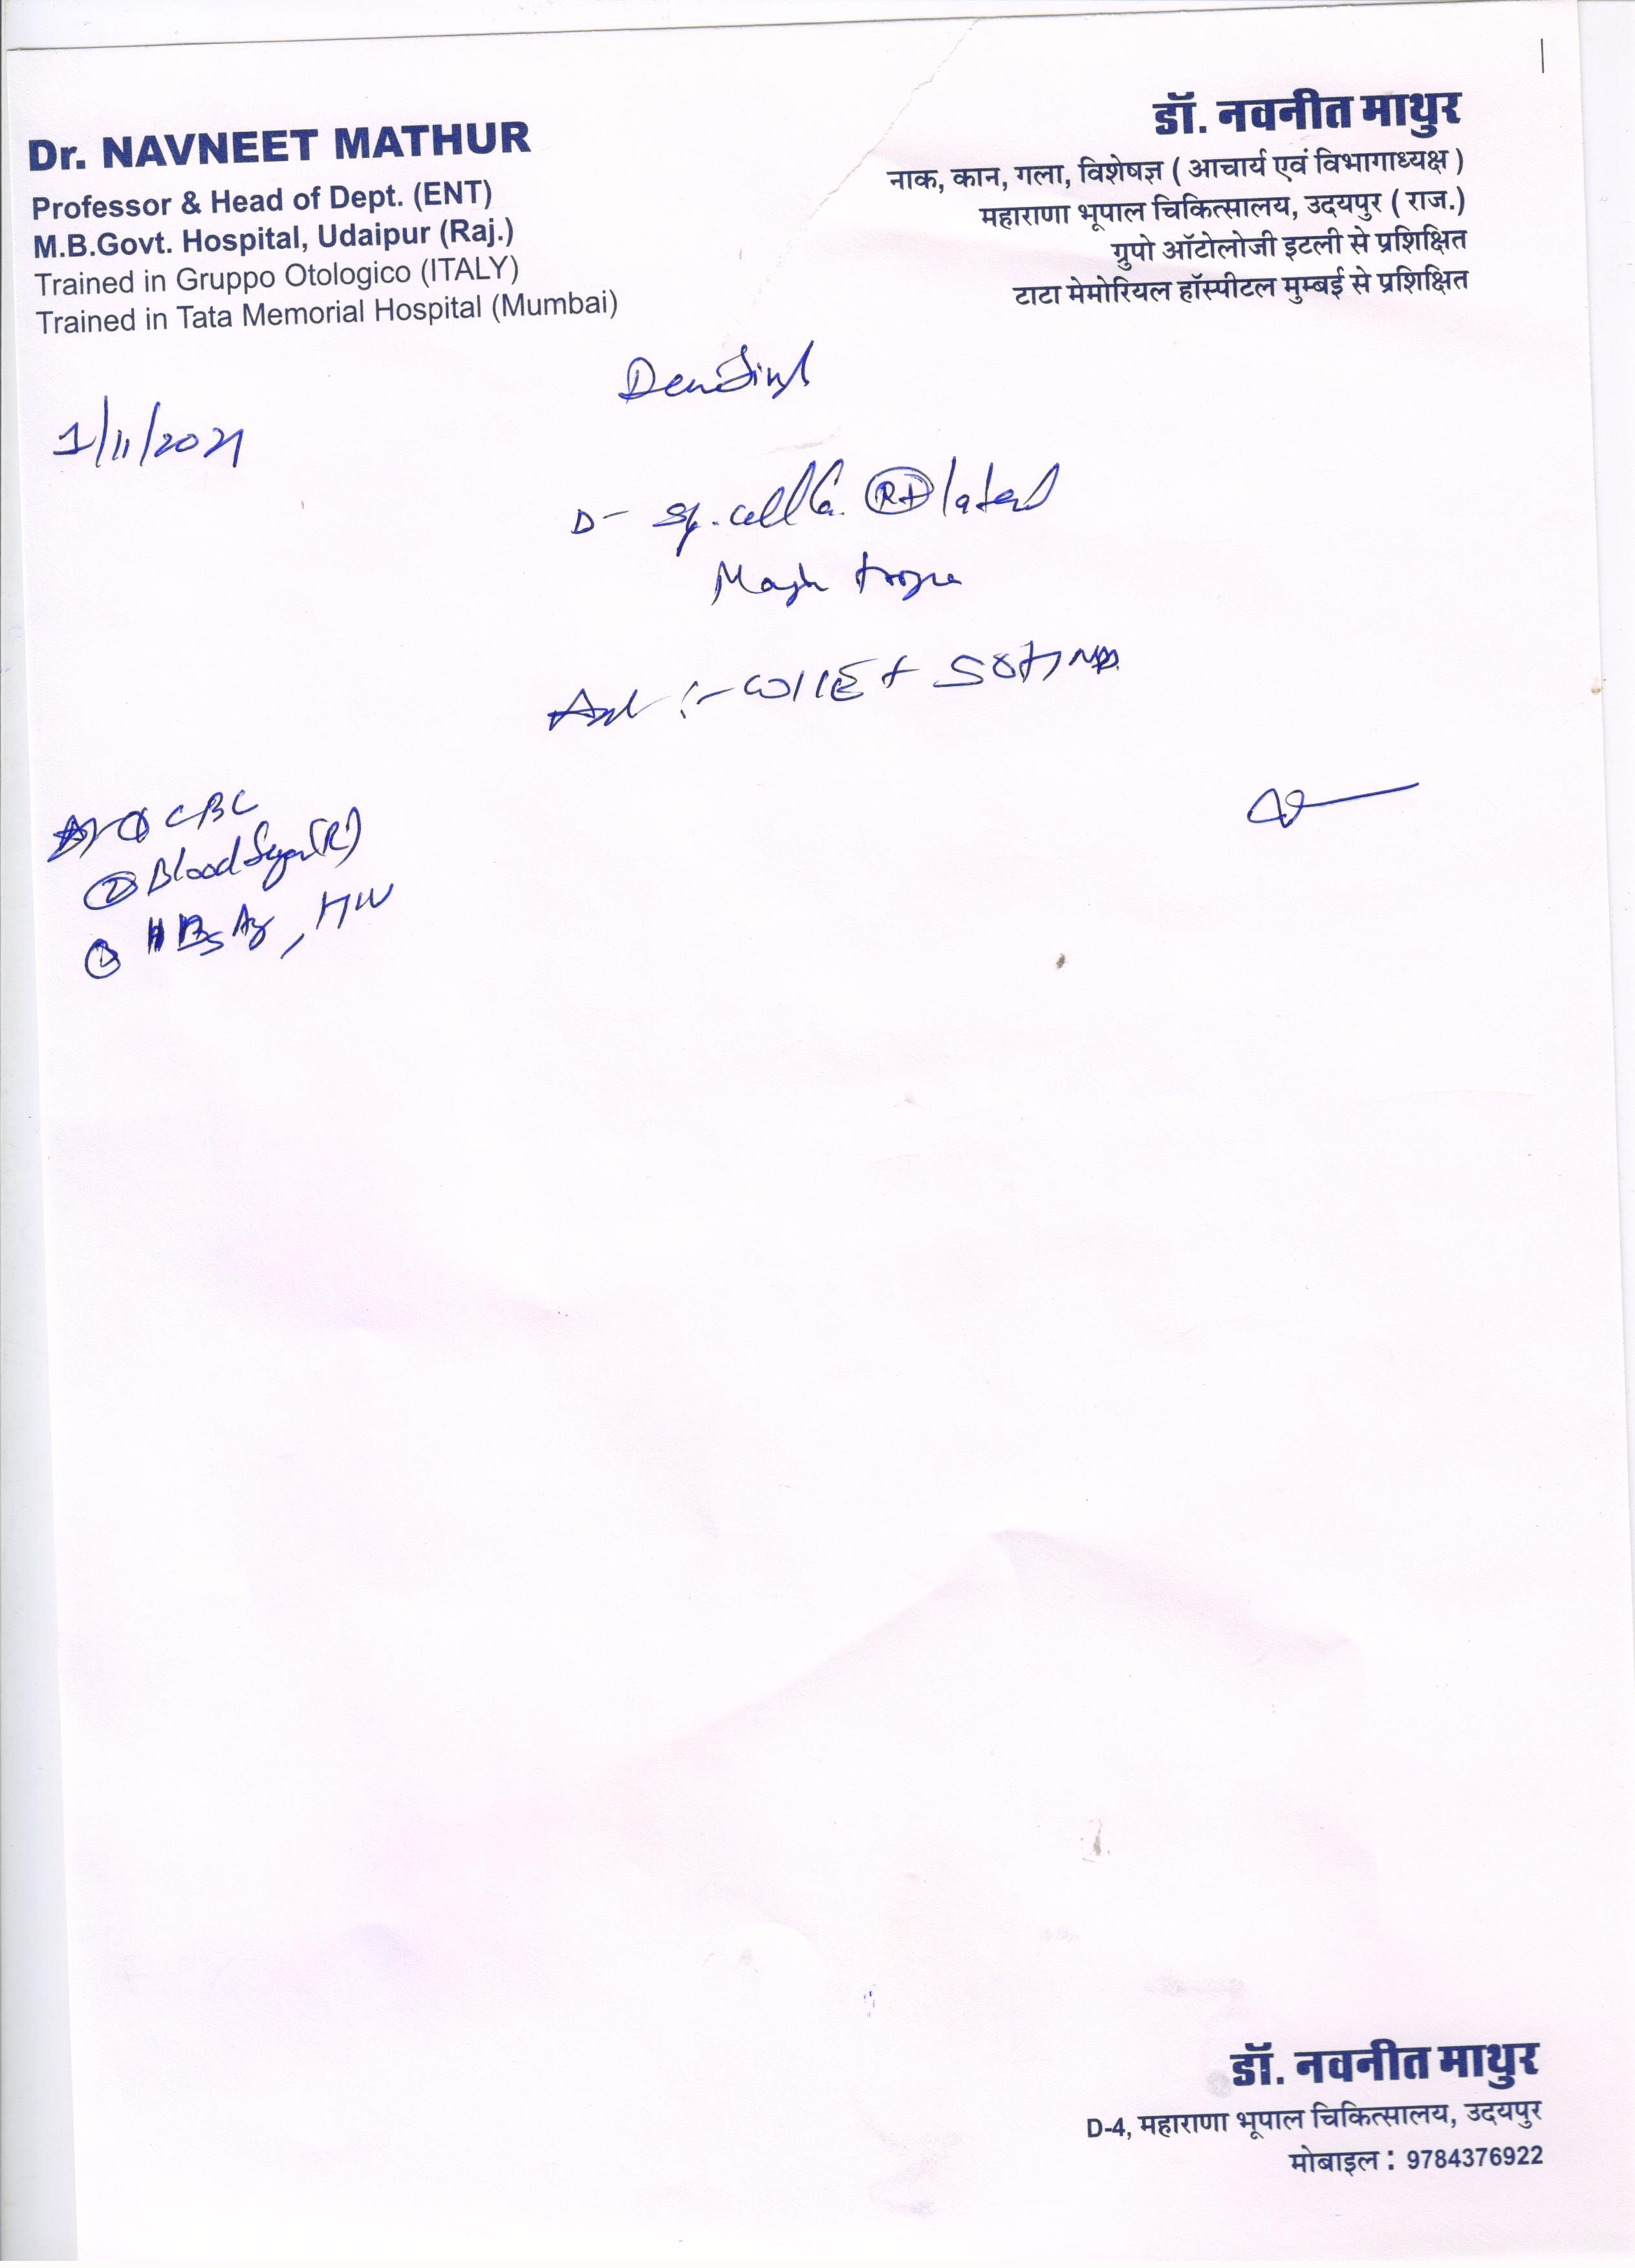 Dr. NAVNEET MATHUR
Professor & Head of Dept. (ENT)
M.B.Govt. Hospital, Udaipur (Raj.)
Trained in Gruppo Otologico (ITALY)
Trained in Tata Memorial Hospital (Mumbai)
डॉ. नवनीत माथुर
नाक, कान, गला, विशेषज्ञ ( आचार्य एवं विभागाध्यक्ष )
महाराणा भूपाल चिकित्सालय, उदयपुर ( राज.)
ग्रुपो ऑटोलोजी इटली से प्रशिक्षित
टाटा मेमोरियल हॉस्पीटल मुम्बई से प्रशिक्षित
1/11/2021
D- Sq. cell Ca. Rt lateral
① CBC
② Blood Sugar (R)
③ HBsAg, HIV
डॉ. नवनीत माथुर
D-4, महाराणा भूपाल चिकित्सालय, उदयपुर
मोबाइल : 9784376922